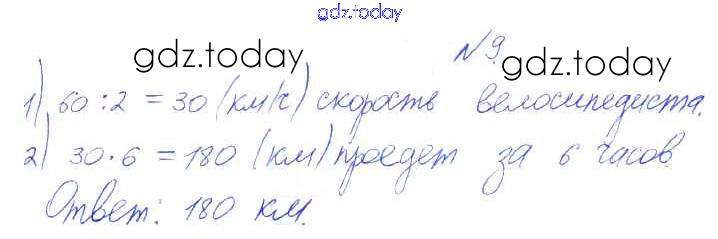 gdz.today
gdz.today
№9.
gdz.today
1) 60 : 2 = 30 (км/ч) скорость велосипедиста.
2) 30 · 6 = 180 (км) проедет за 6 часов
Ответ: 180 км.